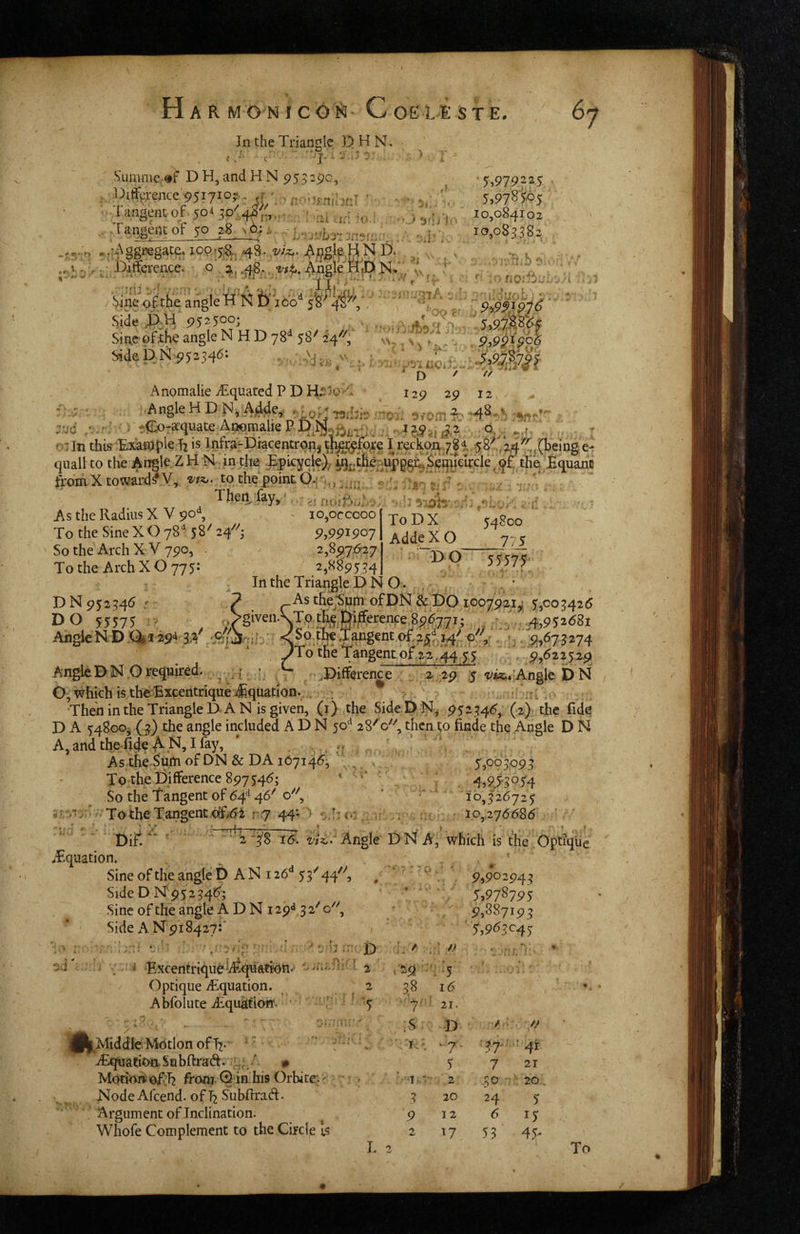 HARMONICON COELESTE. 67
In the Triangle D H N.
Summe of D H, and H N 953290, 5,979225
Difference 951710; 5,978505
Tangent of 50d 30′ 48″, 10,084102
Tangent of 50 28 10,083382
Aggregate, 100 58 48. viz. Angle H N D.
Difference. 0 2 48. viz. Angle H D N.
II.
Sine of the angle H N D 100d 58′ 48″, 9,991976
Side D H 952500; 5,978865
Sine of the angle N H D 78d 58′ 24″, 9,991906
Side D N 952346: 5,978795
D ′ ″
Anomalie Æquated P D H: 129 29 12
Angle H D N, Adde, 2 48
Co-æquate Anomalie P D N, 129 32 0
In this Example ♄ is Infra-Diacentron, therefore I reckon 78d 58′ 24″ (being e-
quall to the Angle Z H N in the Epicycle), in the upper Semicircle of the Equant
from X towards V, viz. to the point O.
Then say,
As the Radius X V 90d, 10,000000 To D X 54800
To the Sine X O 78d 58′ 24″; 9,991907 Adde X O 775
So the Arch X V 790, 2,897627 D O 55575
To the Arch X O 775: 2,889534
In the Triangle D N O.
D N 952346 As the Sum of DN & DO 1007921, 5,003426
D O 55575 given. To the Difference 896771; 4,952681
Angle N D O, 129d 32′ 0″ So the Tangent of 25d 14′ 0″, 9,673274
To the Tangent of 22 44 55 9,622529
Angle D N O required. Difference 2 29 5 viz. Angle D N
O, which is the Excentrique Æquation.
Then in the Triangle D A N is given, (1) the Side D N, 952346, (2) the side
D A 54800, (3) the angle included A D N 50d 28′ 0″, then to finde the Angle D N
A, and the side A N, I say,
As the Sum of DN & DA 1007146, 5,003093
To the Difference 897546; 4,953054
So the Tangent of 64d 46′ 0″, 10,326725
To the Tangent of 62 7 44: 10,276686
Dif. 2 38 16. viz. Angle D N A, which is the Optique
Æquation.
Sine of the angle D A N 126d 53′ 44″, 9,902943
Side D N 952346; 5,978795
Sine of the angle A D N 129d 32′ 0″, 9,887193
Side A N 918427: 5,963045
D ′ ″
Excentrique Æquation. 2 29 5
Optique Æquation. 2 38 16
Absolute Æquation. 5 7 21.
S D ′ ″
Middle Motion of ♄. 1 7 37 41
Æquation Substract. 5 7 21
Motion of ♄ from ☉ in his Orbite. 1 2 30 20
Node Ascend. of ♄ Substract. 3 20 24 5
Argument of Inclination. 9 12 6 15
Whose Complement to the Circle is 2 17 53 45.
L 2 To